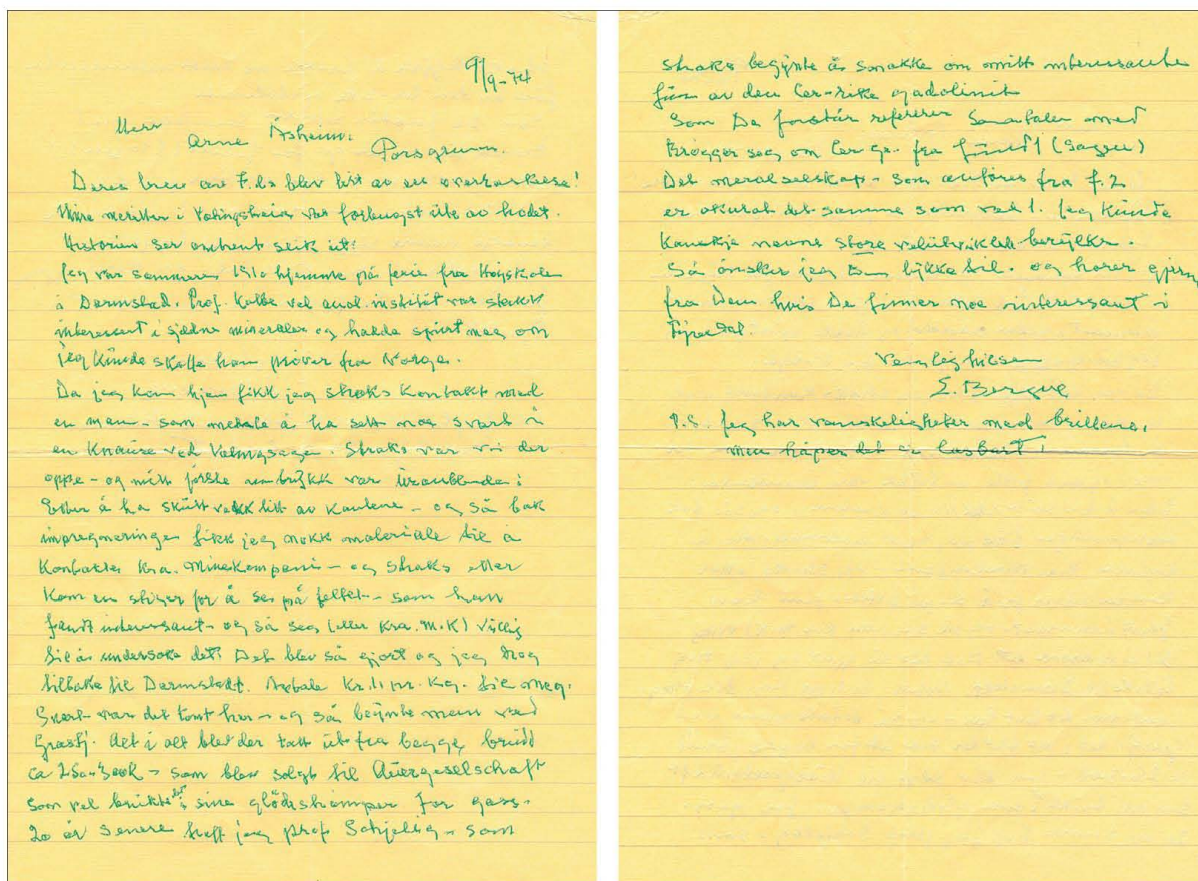 9/9-74
Herr
Arne Åsheim.
Porsgrunn.
Deres brev av f.ds blev litt av en overraskelse!
Mine meritter i Vatingsheia var forlengst ute av hodet.
Historien ser omtrent slik ut:
Jeg var sommeren 1910 hjemme på ferie fra Høiskolen
i Darmstad. Prof. Kolbe ved anal. institut var sterkt
interessert i sjeldne mineraler og hadde spurt meg om
jeg kunde skaffe ham prøver fra Norge.
Da jeg kom hjem fikk jeg straks kontakt med
en mann - som mente å ha sett noe svart i
en knaus ved. Straks var vi der
oppe - og mitt første inntrykk var Uranblende!
Etter å ha skutt vekk litt av kantene - og så bak
impregneringen fikk jeg nokk materiale til å
kontakte Kra. Minekompani - og straks etter
kom en stiger for å se på feltet - som han
fandt interessant - og så seg (eller Kra. M.K) villig
til å undersøke det. Det blev så gjort og jeg drog
tilbake til Darmstadt. Avtale Kr. 1, pr. Kg. til meg.
Snart var det tomt her - og så begynte man ved
Grastj. Alt i alt blev der tatt ut fra begge brudd
ca 250-300k - som blev solgt til Auergeselschaft
som vel brukte det i sine glødestrømper for gass.
20 år senere traff jeg prof Schjelig - som
straks begynte å snakke om mitt interessante
fun av den Cer-rike gadolinit
Som De forstår refererer Samtalen med
Brøgger seg om Cer ga. fra fund 1 (Sagen)
Det meralselskap - som anføres fra f. 2
er akurat det samme som ved 1. Jeg kunde
kanskje nevne store velutviklede berylkr.
Så ønsker jeg Dem lykke til. og hører gjerne
fra Dem hvis De finner noe interessant i
Tjredal.
Vennlig hilsen
E. Berge
P.S. Jeg har vanskeligheter med brillene,
men håper det er lesbart!